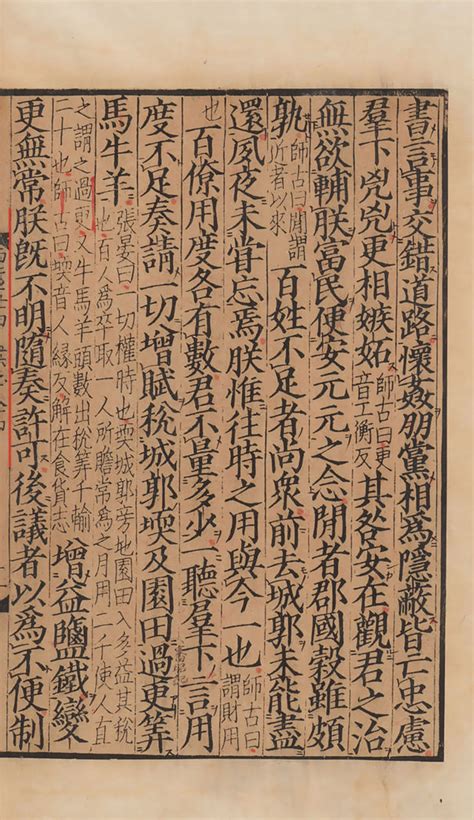 書言事交錯道路懷姦朋黨相為隱蔽皆亡忠慮
羣下兇兇更相嫉妬師古曰更音工衡反其各安在觀君之治
無欲輔朕富民便安元元之念閒者郡國穀雖頗
孰師古曰閒謂近者以來百姓不足者尚衆前去城郭未能盡
還夙夜未甞忘焉朕惟往時之用與今一也師古曰謂財用
也百僚用度各有數君不量多少一聽羣下言用
度不足奏請一切增賦稅城郭堧及園田過更筭
馬牛羊張晏曰一切權時也堧城郭旁地園田入多益其稅也百人為卒取一人所贍常為之月用二千使人直
之謂之過更又牛馬羊頭數出稅筭千輸二十也師古曰堧音人緣反解在食貨志增益鹽鐵變
更無常朕既不明隨奏許可後議者以為不便制